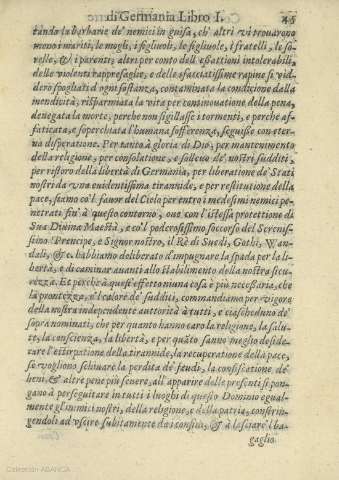 di Germania Libro I. 45
tando la barbarie de' nemici in guisa, ch' altri vi trouarono
meno i mariti, le mogli, i figliuoli, le figliuole, i fratelli, le so-
relle, & i parenti; altri per conto dell'essattioni intolerabili,
delle violenti rappresaglie, e delle sfacciatissime rapine si vid-
dero spogliati d'ogni sostanza, contaminata la condizione dalla
mendicità, risparmiata la vita per continouatione della pena,
denegata la morte, perche non sigillasse i tormenti, e perche af-
faticata, e soperchiata l'humana sofferenza, seguisse con eter-
na disperatione. Per tanto à gloria di Dio, per mantenimento
della religione, per consolatione, e solleuo de' nostri sudditi,
per ristoro della libertà di Germania, per liberatione de' Stati
nostri da vna euidentissima tirannide, e per restitutione della
pace, siamo co'l fauor del Cielo per entro i medesimi nemici pe-
netrati fin' à questo contorno, oue con l'istessa protettione di
Sua Diuina Maestà, e co'l poderosissimo soccorso del Serenis-
simo Prencipe, e Signor nostro, il Rè di Suedi, Gothi, Wan-
dali, &c. habbiamo deliberato d'impugnare la spada per la li-
bertà, e di caminar auanti allo stabilimento della nostra sicu-
rezza. Et perche à quest' effetto niuna cosa è più necessaria, che
la prontezza, e'l calore de' sudditi, commandiamo per vigore
della nostra independente autorità à tutti, e ciascheduno de'
sopra nominati, che per quanto hanno caro la religione, la salu-
te, la conscienza, la libertà, e per quãto sanno meglio deside-
rare l'estirpatione della tirannide, la recuperatione della pace,
se vogliono schiuare la perdita de' feudi, la confiscatione de'
beni, & altre pene più seuere, all' apparire delle presenti si pon-
gano à perseguitare in tutti i luoghi di questo Dominio egual-
mente gl'inimici nostri, della religione, e della patria, constrin-
gendoli ad vscire subitamente da i confini, & à lasciare il ba-
gaglio
Colección ABANCA